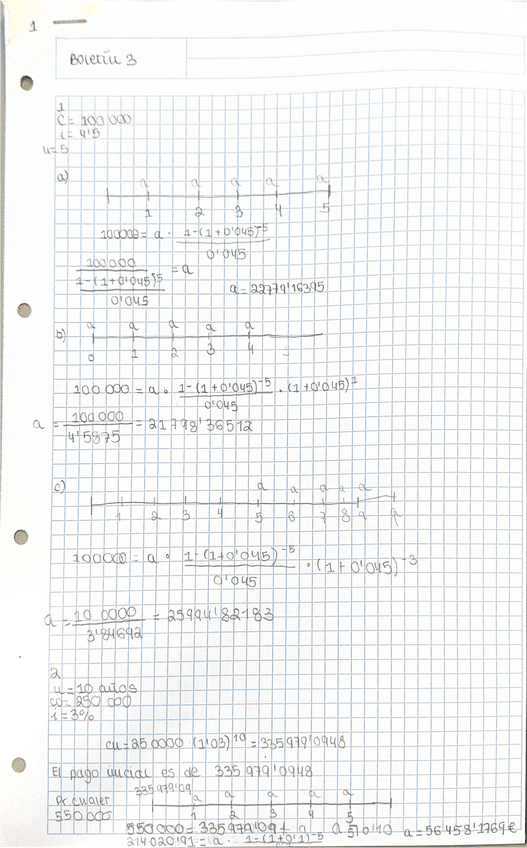 1
Boletín 3
1
C = 100 000
i = 4'5
n = 5
a)
a a a a a
1 2 3 4 5
100000 = a · 1-(1+0'045)^-5 / 0'045
100000 / (1-(1+0'045)^-5 / 0'045) = a
a = 22779'16395
b)
a a a a a
0 1 2 3 4
100 000 = a · 1-(1+0'045)^-5 / 0'045 · (1+0'045)^1
a = 100 000 / 4'5875 = 21798'36512
c)
a a a a a
1 2 3 4 5 6 7 8 9
100000 = a · 1-(1+0'045)^-5 / 0'045 · (1+0'045)^-3
a = 10 0000 / 3'84692 = 25994'82183
2
n = 10 años
co = 250 000
i = 3%
cn = 25 0000 (1'03)^10 = 335 979'0948
El pago inicial es de 335 979'0948
335979'09
a a a a
1 2 3 4 5
550 000
550 000 = 335979'09 +
a = 56 458'1769€
214 020'91 = a · 1-(1+0'1)^-5